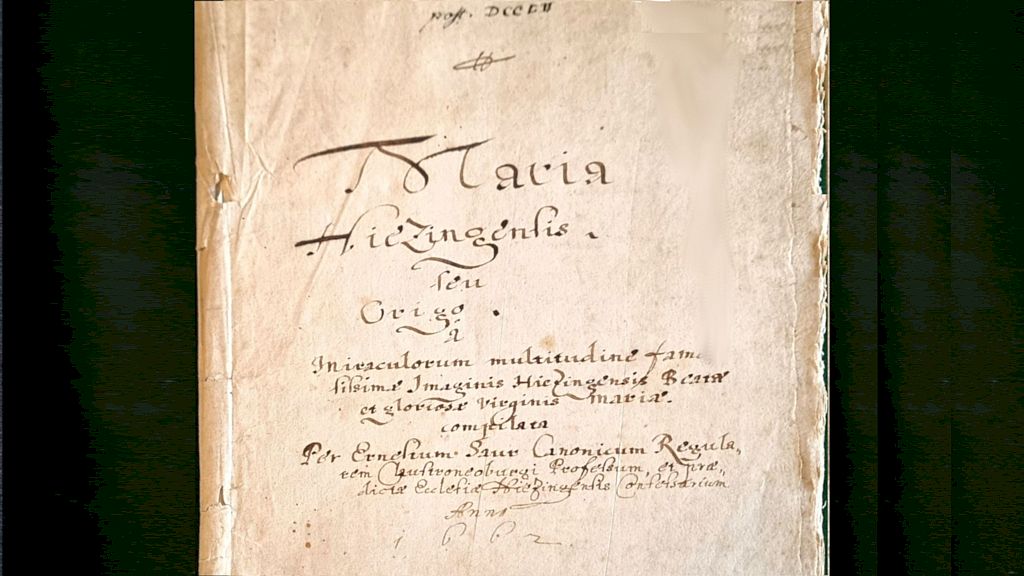 post. DCCLII
Maria
Hiezingensis.
seu
Origo.
a
Miraculorum multitudine famo
sissimæ Imaginis Hiezingensis Beatæ
et gloriosæ Virginis Mariæ.
compilata
Per Ernesium Saur Canonicum Regula,
rem Claustroneoburgi Professum, et præ,
dictæ Ecclesiæ Hiezingensis Confessarium
Anno
1662.